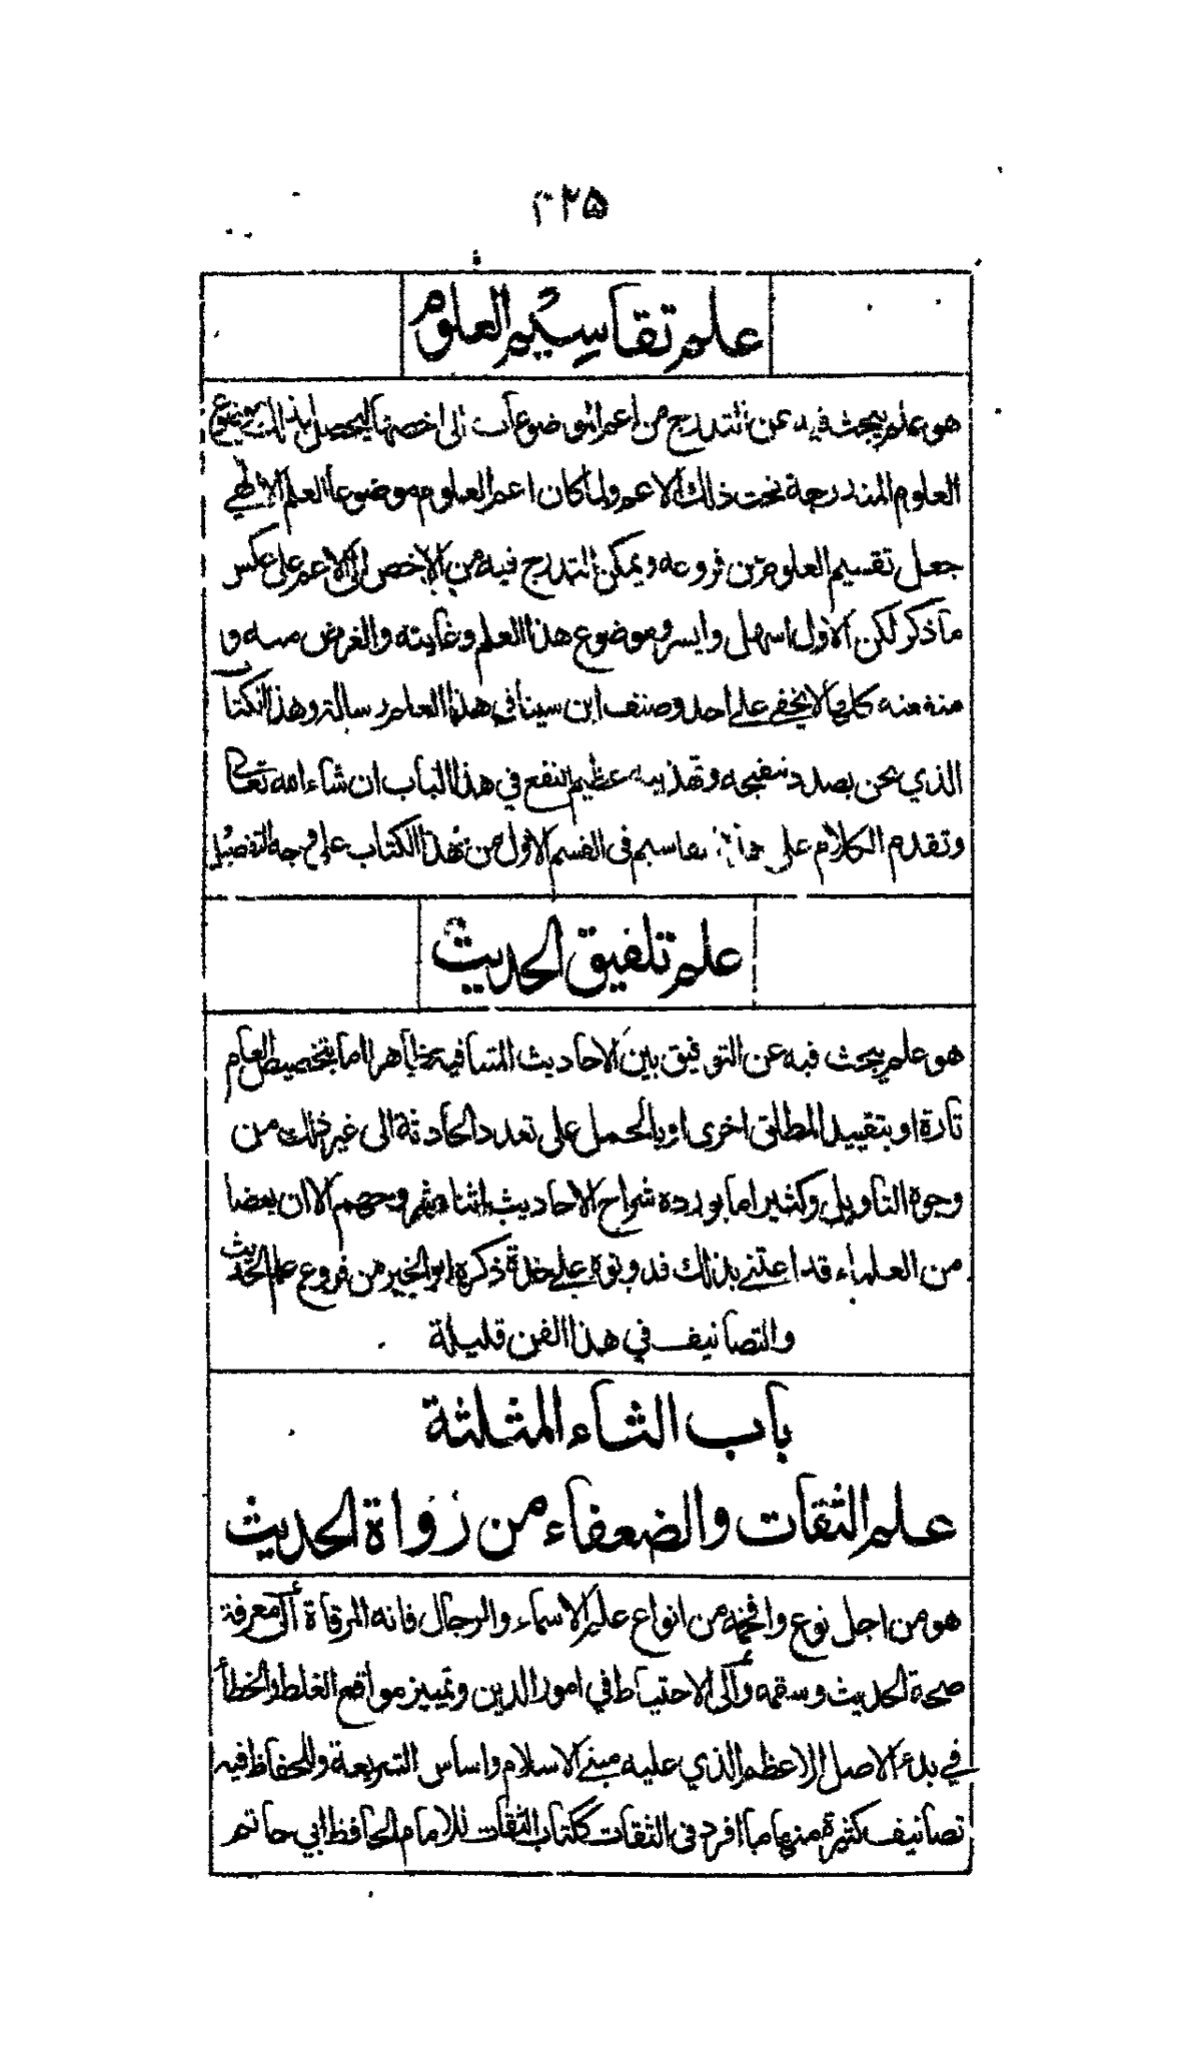 ۳۲۵
علم تقاسيم العلوم
هو علم يبحث فيه عن التدرج من اعم الموضوعات الى اخصها ليحصل بذلك موضوع
العلوم المندرجة تحت ذلك الاعم ولما كان اعم العلوم موضوعا العلم الالهي
جعل تقسيم العلوم من فروعه ويمكن التدرج فيه من الاخص الى الاعم على عكس
ما ذكر لكن الاول اسهل وايسر وموضوع هذا العلم وغايته والغرض منه و
منفعته كلها لا يخفى على احد وصنف ابن سينا في هذا العلم رسالة وهذا الكتاب
الذي نحن بصدد تنقيحه وتهذيبه عظيم النفع في هذا الباب ان شاء الله تعالى
وتقدم الكلام على هذا التقاسيم في القسم الاول من هذا الكتاب على وجه التفصيل
علم تلفيق الحديث
هو علم يبحث فيه عن التوفيق بين الاحاديث المتنافية ظاهرا اما بتخصيص العام
تارة او بتقييد المطلق اخرى او بالحمل على تعدد الحادثة الى غير ذلك من
وجوه التاويل وكثيرا ما يورده شراح الاحاديث اثناء شروحهم الا ان بعضا
من العلماء قد اعتنى بذلك فدونوه على حدة ذكره ابو الخير من فروع علم الحديث
والتصانيف في هذا الفن قليلة
باب الثاء المثلثة
علم الثقات والضعفاء من رواة الحديث
هو من اجل نوع وافخمه من انواع علم الاسماء والرجال فانه المرقاة الى معرفة
صحة الحديث وسقمه والى الاحتياط في امور الدين وتمييز مواقع الغلط والخطأ
في بدء الاصل الاعظم الذي عليه مبنى الاسلام واساس الشريعة وللحفاظ فيه
تصانيف كثيرة منها ما افرد في الثقات ككتاب الثقات للامام الحافظ ابي حاتم